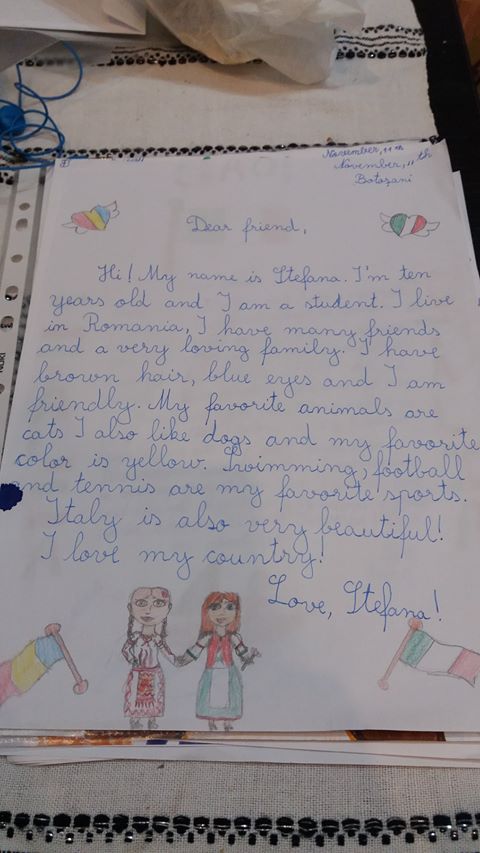 November, 11th
November, 11th
Botoșani
Dear friend,
Hi! My name is Ștefana. I'm ten
years old and I am a student. I live
in Romania, I have many friends
and a very loving family. I have
brown hair, blue eyes and I am
friendly. My favorite animals are
cats I also like dogs and my favorite
color is yellow. Swimming, football
and tennis are my favorite sports.
Italy is also very beautiful!
I love my country!
Love, Ștefana!